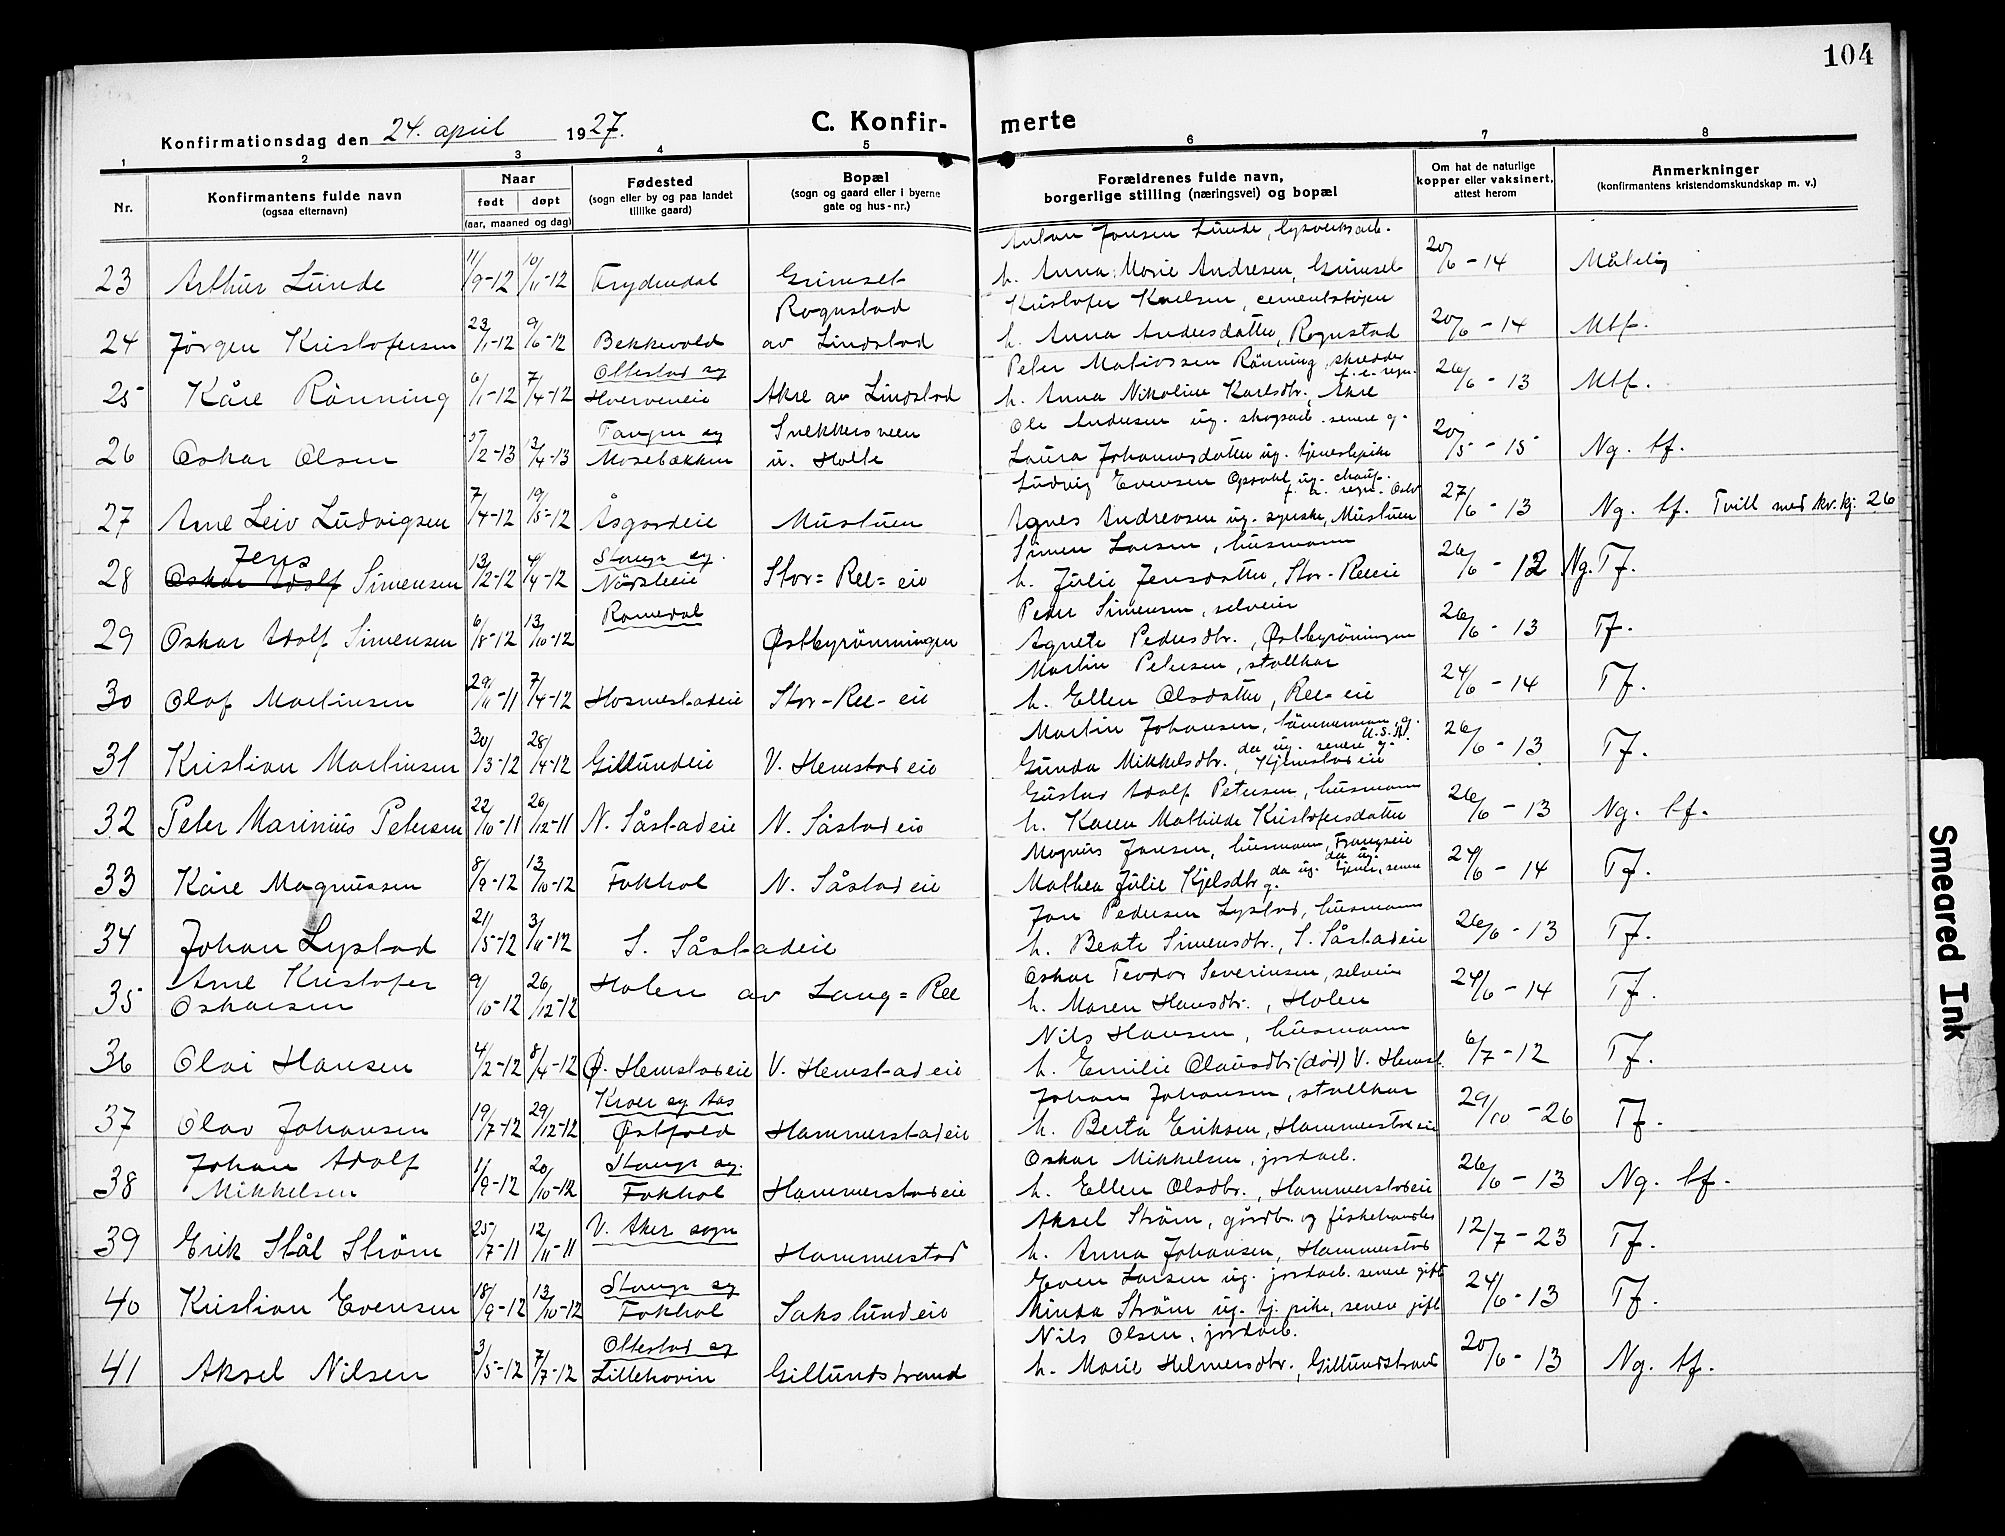 104
Konfirmationsdag den 24. april 1927.
C. Konfirmerte
1 2 3 4 5 6 7 8
Nr.
Konfirmantens fulde navn
(ogsaa efternavn)
Naar
født døpt
(aar, maaned og dag)
Fødested
(sogn eller by og paa landet
tillike gaard)
Bopæl
(sogn og gaard eller i byerne
gate og hus-nr.)
Forældrenes fulde navn,
borgerlige stilling (næringsvei) og bopæl
Om hat de naturlige
kopper eller vaksinert,
attest herom
Anmerkninger
(konfirmantens kristendomskundskap m. v.)
Anton Jonsen Lunde, lysverksarb.
23 Arthur Lunde 11/9-12 10/11-12 Frydendal Grimset h. Anna Marie Andresen, Grimset 20/6-14 Målelig
Rognstad Kristofer Karlsen, cementstøper
24 Jörgen Kristofersen 23/1-12 9/6-12 Bekkevold av Lindstad h. Anna Andersdatter, Rognstad 20/6-14 Mtf.
Ottestad sg Peter Matiossen Rönning, skredder
25 Kåre Rönning 6/1-12 7/4-12 Hverveneie Akre av Lindstad h. Anna Nikoline Karlsdtr., Akre 26/6-13 Mtf.
Tangen sg Snekkersveen Ole Andersen ug. skogsarb. senere g.
26 Oskar Olsen 5/2-13 3/4-13 Mosebækken u. Holte Laura Johannesdatter ug. tjenestepike 20/5-15 Ng. tf.
Ludvig Evensen Opsahl ug. chauf.
27 Arne Leiv Ludvigsen 7/4-12 19/5-12 Åsgardeie Mustuen Agnes Andreasen ug. syerske, Mustuen 27/6-13 Ng. tf. Tvill med kv. kj. 26
Jens Stange sg. Simen Larsen, husmann
28 Oskar Adolf Simensen 13/2-12 4/4-12 Nörsteie Stor=Ree=eie h. Julie Jensdatter, Stor-Reeeie 26/6-12 Ng. Tf.
Romedal Peder Simensen, selveier
29 Oskar Adolf Simensen 6/8-12 13/10-12 Østbyrönningen Agnete Pedersdtr., Østbyröningen 26/6-13 Tf.
Martin Petersen, stallkar
30 Olaf Martinsen 29/11-11 7/4-12 Hosmestadeie Stor-Ree-eie h. Ellen Olsdatter, Ree-eie 24/6-14 Tf.
Martin Johansen, tömmermann, g. U.S.A.
da ug. senere g.
31 Kristian Martinsen 30/3-12 28/4-12 Gillundeie V. Hemstadeie Gunda Mikkelsdtr., Hjemstadeie 26/6-13 Tf.
Gustav Adolf Petersen, husmann
32 Peter Marinius Petersen 22/10-11 26/12-11 N. Såstadeie N. Såstadeie h. Karen Mathilde Kristofersdatter 26/6-13 Ng. tf.
Magnus Jonsen, husmann, da ug.
33 Kåre Magnussen 8/9-12 13/10-12 Fokhol N. Såstadeie Mathea Julie Kjelsdtr da ug. tjener, senere g. 24/6-14 Tf.
Jon Pedersen Lystad, husmann
34 Johan Lystad 21/5-12 3/11-12 S. Såstadeie h. Beate Simensdtr., S. Såstadeie 26/6-13 Tf.
Arne Kristofer Oskar Teodor Severinsen, selveier
35 Oskarsen 9/10-12 26/12-12 Holen av Lang=Ree h. Maren Hansdtr., Holen 24/6-14 Tf.
Nils Hansen, husmann
36 Olai Hansen 4/2-12 8/4-12 Ø. Hemstadeie V. Hemstadeie h. Emilie Olausdtr (död) V. Hemst. 6/7-12 Tf.
Kroer sg Aas Johan Johansen, stallkar
37 Olav Johansen 19/7-12 29/12-12 Østfold Hammerstadeie h. Berta Eriksen, Hammerstadeie 29/10-26 Tf.
Johan Adolf Stange sg. Oskar Mikkelsen, jordarb.
38 Mikkelsen 1/9-12 20/10-12 Fokhol Hammerstadeie h. Ellen Olsdtr., Hammerstadeie 26/6-13 Ng. tf.
V. Aker sogn Aksel Ström, gårdbr. og fiskehandler
39 Erik Stål Ström 25/7-11 12/11-11 Hammerstad h. Anna Johansen, Hammerstad 12/7-23 Tf.
Stange sg Even Larsen ug. jordarb. senere gift
40 Kristian Evensen 18/9-12 13/10-12 Fokhol Sakslundeie Minda Ström ug. tj. pike, senere gift 24/6-13 Tf.
Ottestad sg Nils Olsen, jordarb.
41 Aksel Nilsen 3/5-12 7/7-12 Lillehovin Gillundstrand h. Marie Helmersdtr., Gillundstrand 20/6-13 Ng. tf.
Smeared Ink